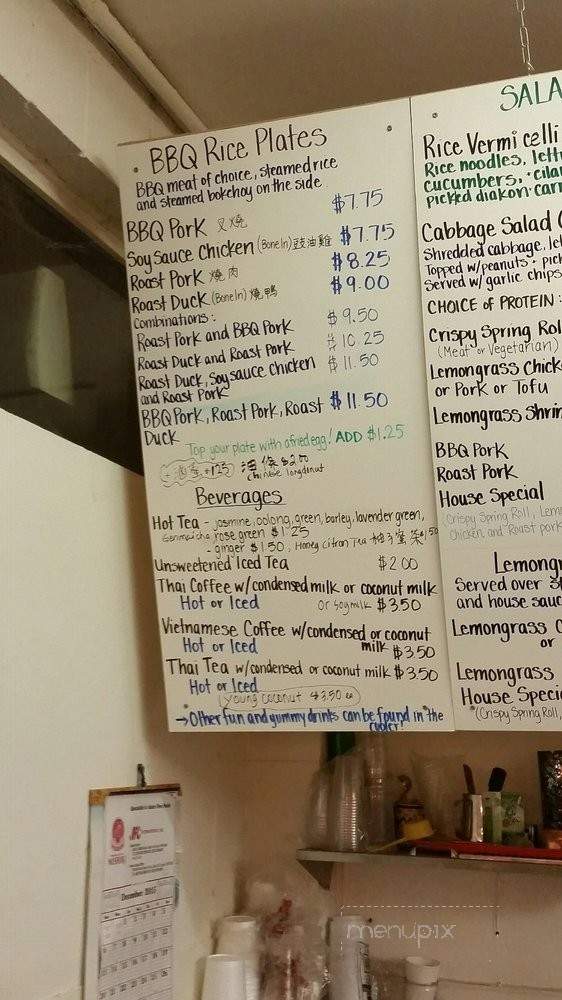 BBQ Rice Plates
BBQ meat of choice, steamed rice
and steamed bokchoy on the side
BBQ Pork 叉燒 $7.75
Soy sauce Chicken (Bone In) 豉油雞 $7.75
Roast Pork 燒肉 $8.25
Roast Duck (Bone In) 燒鴨 $9.00
Combinations:
Roast Pork and BBQ Pork $9.50
Roast Duck and Roast Pork $10.25
Roast Duck, Soy sauce chicken $11.50
and Roast Pork
BBQ Pork, Roast Pork, Roast $11.50
Duck
Top your plate with a fried egg! ADD $1.25
+1.25 $2.00
Chinese longdonut
Beverages
Hot Tea - jasmine, oolong, green, barley, lavender green,
Genmaicha, rose green $1.25
- ginger $1.50, Honey Citron Tea 柚子蜜茶 $1.50
Unsweetened Iced Tea $2.00
Thai Coffee w/condensed milk or coconut milk
Hot or Iced or soymilk $3.50
Vietnamese Coffee w/condensed or coconut
Hot or Iced milk $3.50
Thai Tea w/condensed or coconut milk $3.50
Hot or Iced
young coconut $3.50 ea
→ Other fun and yummy drinks can be found in the
cooler!
SALA
Rice Vermicelli
Rice noodles, lett
cucumbers, cilan
pickled diakon carr
Cabbage Salad C
Shredded cabbage, let
Topped w/peanuts, pick
Served w/ garlic chips
CHOICE of PROTEIN:
Crispy Spring Rol
(Meat or Vegetarian)
Lemongrass Chick
or Pork or Tofu
Lemongrass Shrim
BBQ Pork
Roast Pork
House Special
(Crispy Spring Roll, Lemo
Chicken and Roast pork
Lemongr
Served over st
and house sauc
Lemongrass C
or
Lemongrass
House Specia
(Crispy Spring Roll,
December 2015
menupix